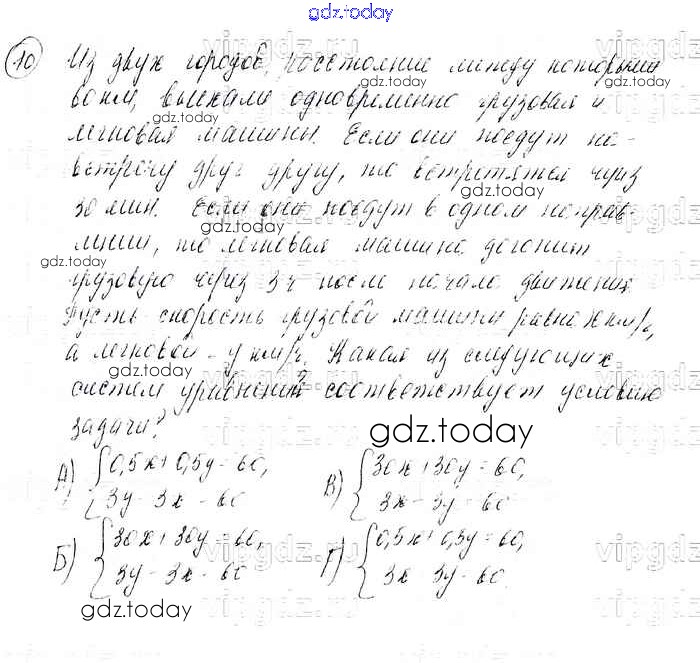 gdz.today
10 Из двух городов, расстояние между которыми
60 км, выехали одновременно грузовая и
gdz.today
легковая машины. Если они поедут на-
gdz.today
встречу друг другу, то встретятся через
gdz.today
30 мин. Если они поедут в одном направ-
gdz.today
лении, то легковая машина догонит
gdz.today
грузовую через 3 ч после начала движения.
Пусть скорость грузовой машины равна x км/ч,
а легковой - y км/ч. Какая из следующих
gdz.today
систем уравнений соответствует условию
задачи?
gdz.today
А) { 0,5x + 0,5y = 60, В) { 30x + 30y = 60,
3y - 3x = 60 3x - 3y = 60
Б) { 30x + 30y = 60, Г) { 0,5x + 0,5y = 60,
3y - 3x = 60 3x - 3y = 60.
gdz.today gdz.today